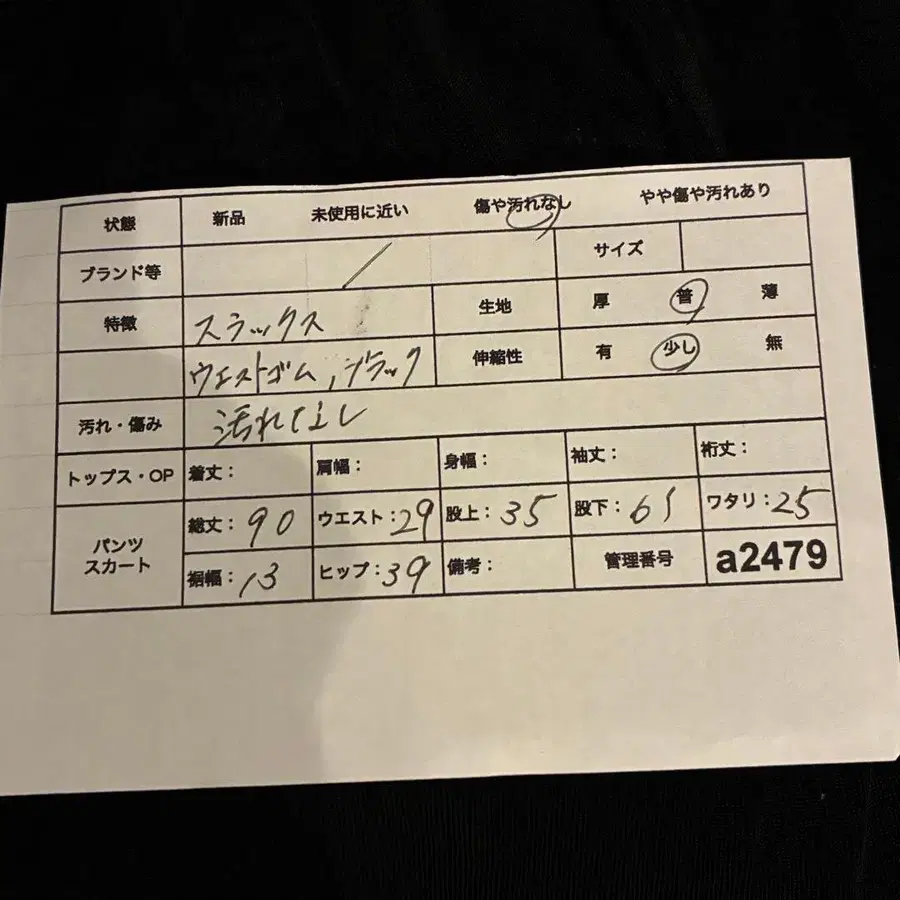 状態 新品 未使用に近い 傷や汚れなし やや傷や汚れあり
ブランド等 / サイズ
特徴 スラックス 生地 厚 普 薄
ウエストゴム,ブラック 伸縮性 有 少し 無
汚れ・傷み 汚れなし
トップス・OP 着丈: 肩幅: 身幅: 袖丈: 裄丈:
パンツ スカート 総丈:90 ウエスト:29 股上:35 股下:61 ワタリ:25
裾幅:13 ヒップ:39 備考: 管理番号 a2479